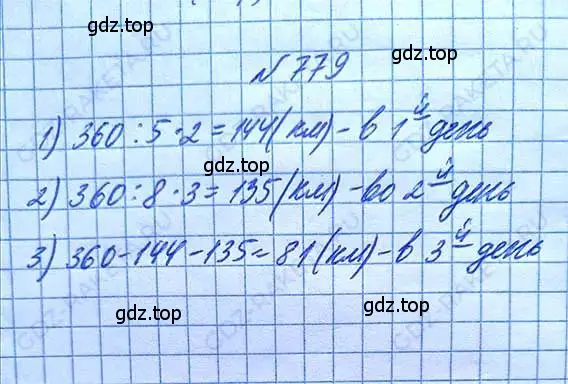 gdz.top
№779
1) 360:5·2=144(км)-в 1й день
gdz.top
2) 360:8·3=135(км)-во 2й день
3) 360-144-135=81(км)-в 3й день
gdz.top
gdz.top